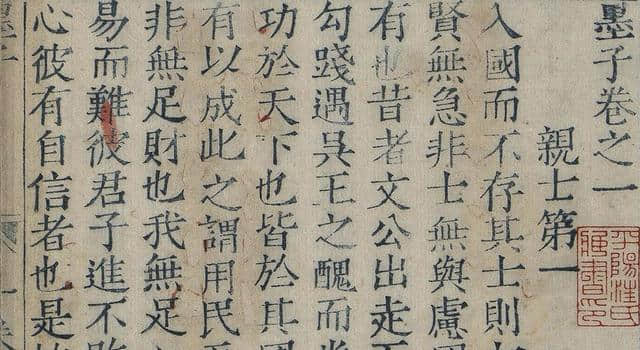 墨子卷之一
親士第一
平陽汪氏藏書印
入國而不存其士則
賢無急非士無與慮國
有也昔者文公出走
勾踐遇吳王之醜而
功於天下也皆於其國
有以成此之謂用民
非無足財也我無足
易而難彼君子進不
心彼有自信者也是